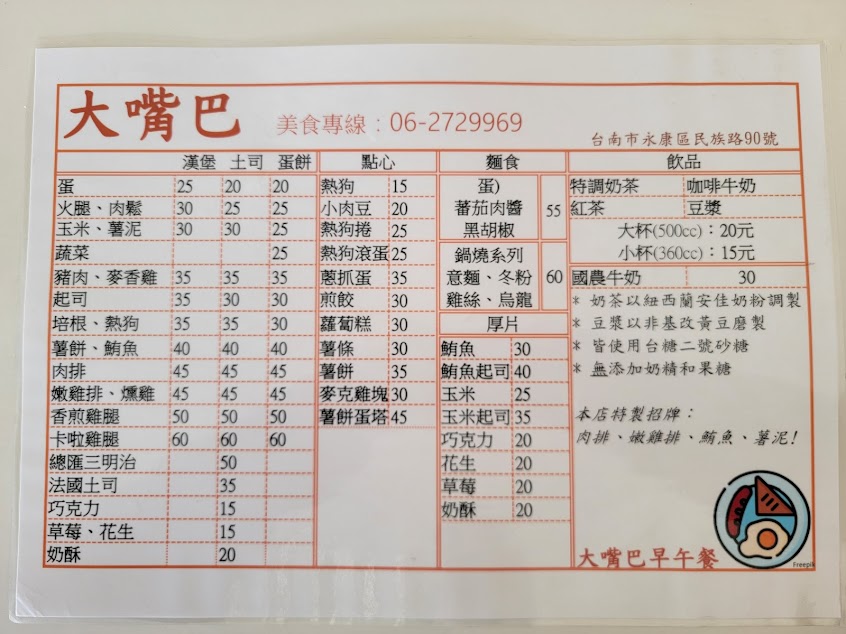 大嘴巴 美食專線：06-2729969
台南市永康區民族路90號
漢堡 土司 蛋餅
蛋 25 20 20
火腿、肉鬆 30 25 25
玉米、薯泥 30 30 25
蔬菜 25
豬肉、麥香雞 35 35 35
起司 35 30 30
培根、熱狗 35 35 30
薯餅、鮪魚 40 40 40
肉排 45 45 45
嫩雞排、燻雞 45 45 45
香煎雞腿 50 50 50
卡啦雞腿 60 60 60
總匯三明治 50
法國土司 35
巧克力 15
草莓、花生 15
奶酥 20
點心
熱狗 15
小肉豆 20
熱狗捲 25
熱狗滾蛋 25
蔥抓蛋 35
煎餃 30
蘿蔔糕 30
薯條 30
薯餅 35
麥克雞塊 30
薯餅蛋塔 45
麵食
蛋)
蕃茄肉醬 55
黑胡椒
鍋燒系列
意麵、冬粉 60
雞絲、烏龍
厚片
鮪魚 30
鮪魚起司 40
玉米 25
玉米起司 35
巧克力 20
花生 20
草莓 20
奶酥 20
飲品
特調奶茶 咖啡牛奶
紅茶 豆漿
大杯(500cc)：20元
小杯(360cc)：15元
國農牛奶 30
* 奶茶以紐西蘭安佳奶粉調製
* 豆漿以非基改黃豆磨製
* 皆使用台糖二號砂糖
* 無添加奶精和果糖
本店特製招牌：
肉排、嫩雞排、鮪魚、薯泥!
大嘴巴早午餐
Freepik